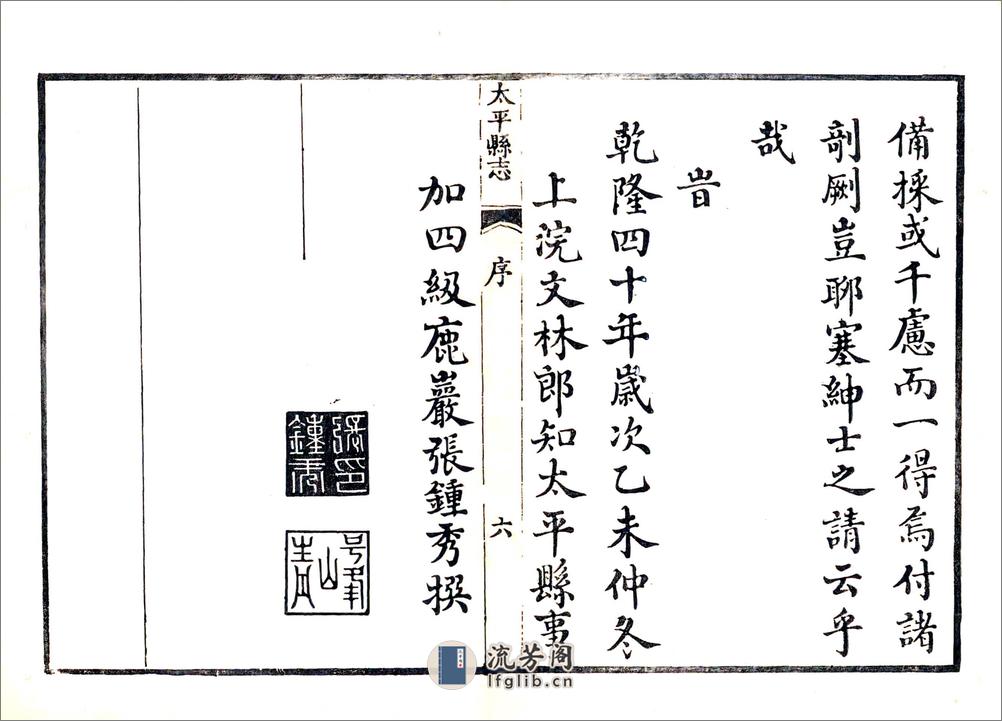 備採或千慮而一得焉付諸
剞劂豈聊塞紳士之請云乎
哉
旹
乾隆四十年歲次乙未仲冬
上浣文林郎知太平縣事
太平縣志 序 六
加四級鹿巖張鍾秀撰
張印鍾秀
流芳阁
lfglib.cn